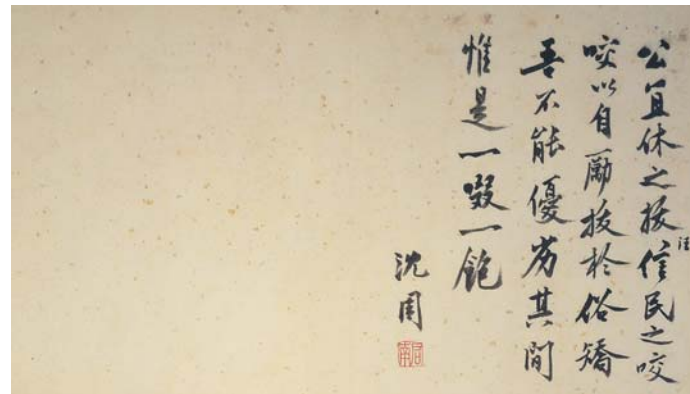 公宜休之拔汪信民之咬
咬以自勵拔於俗矯
吾不能優劣其間
惟是一啜一飽
沈周
啟南